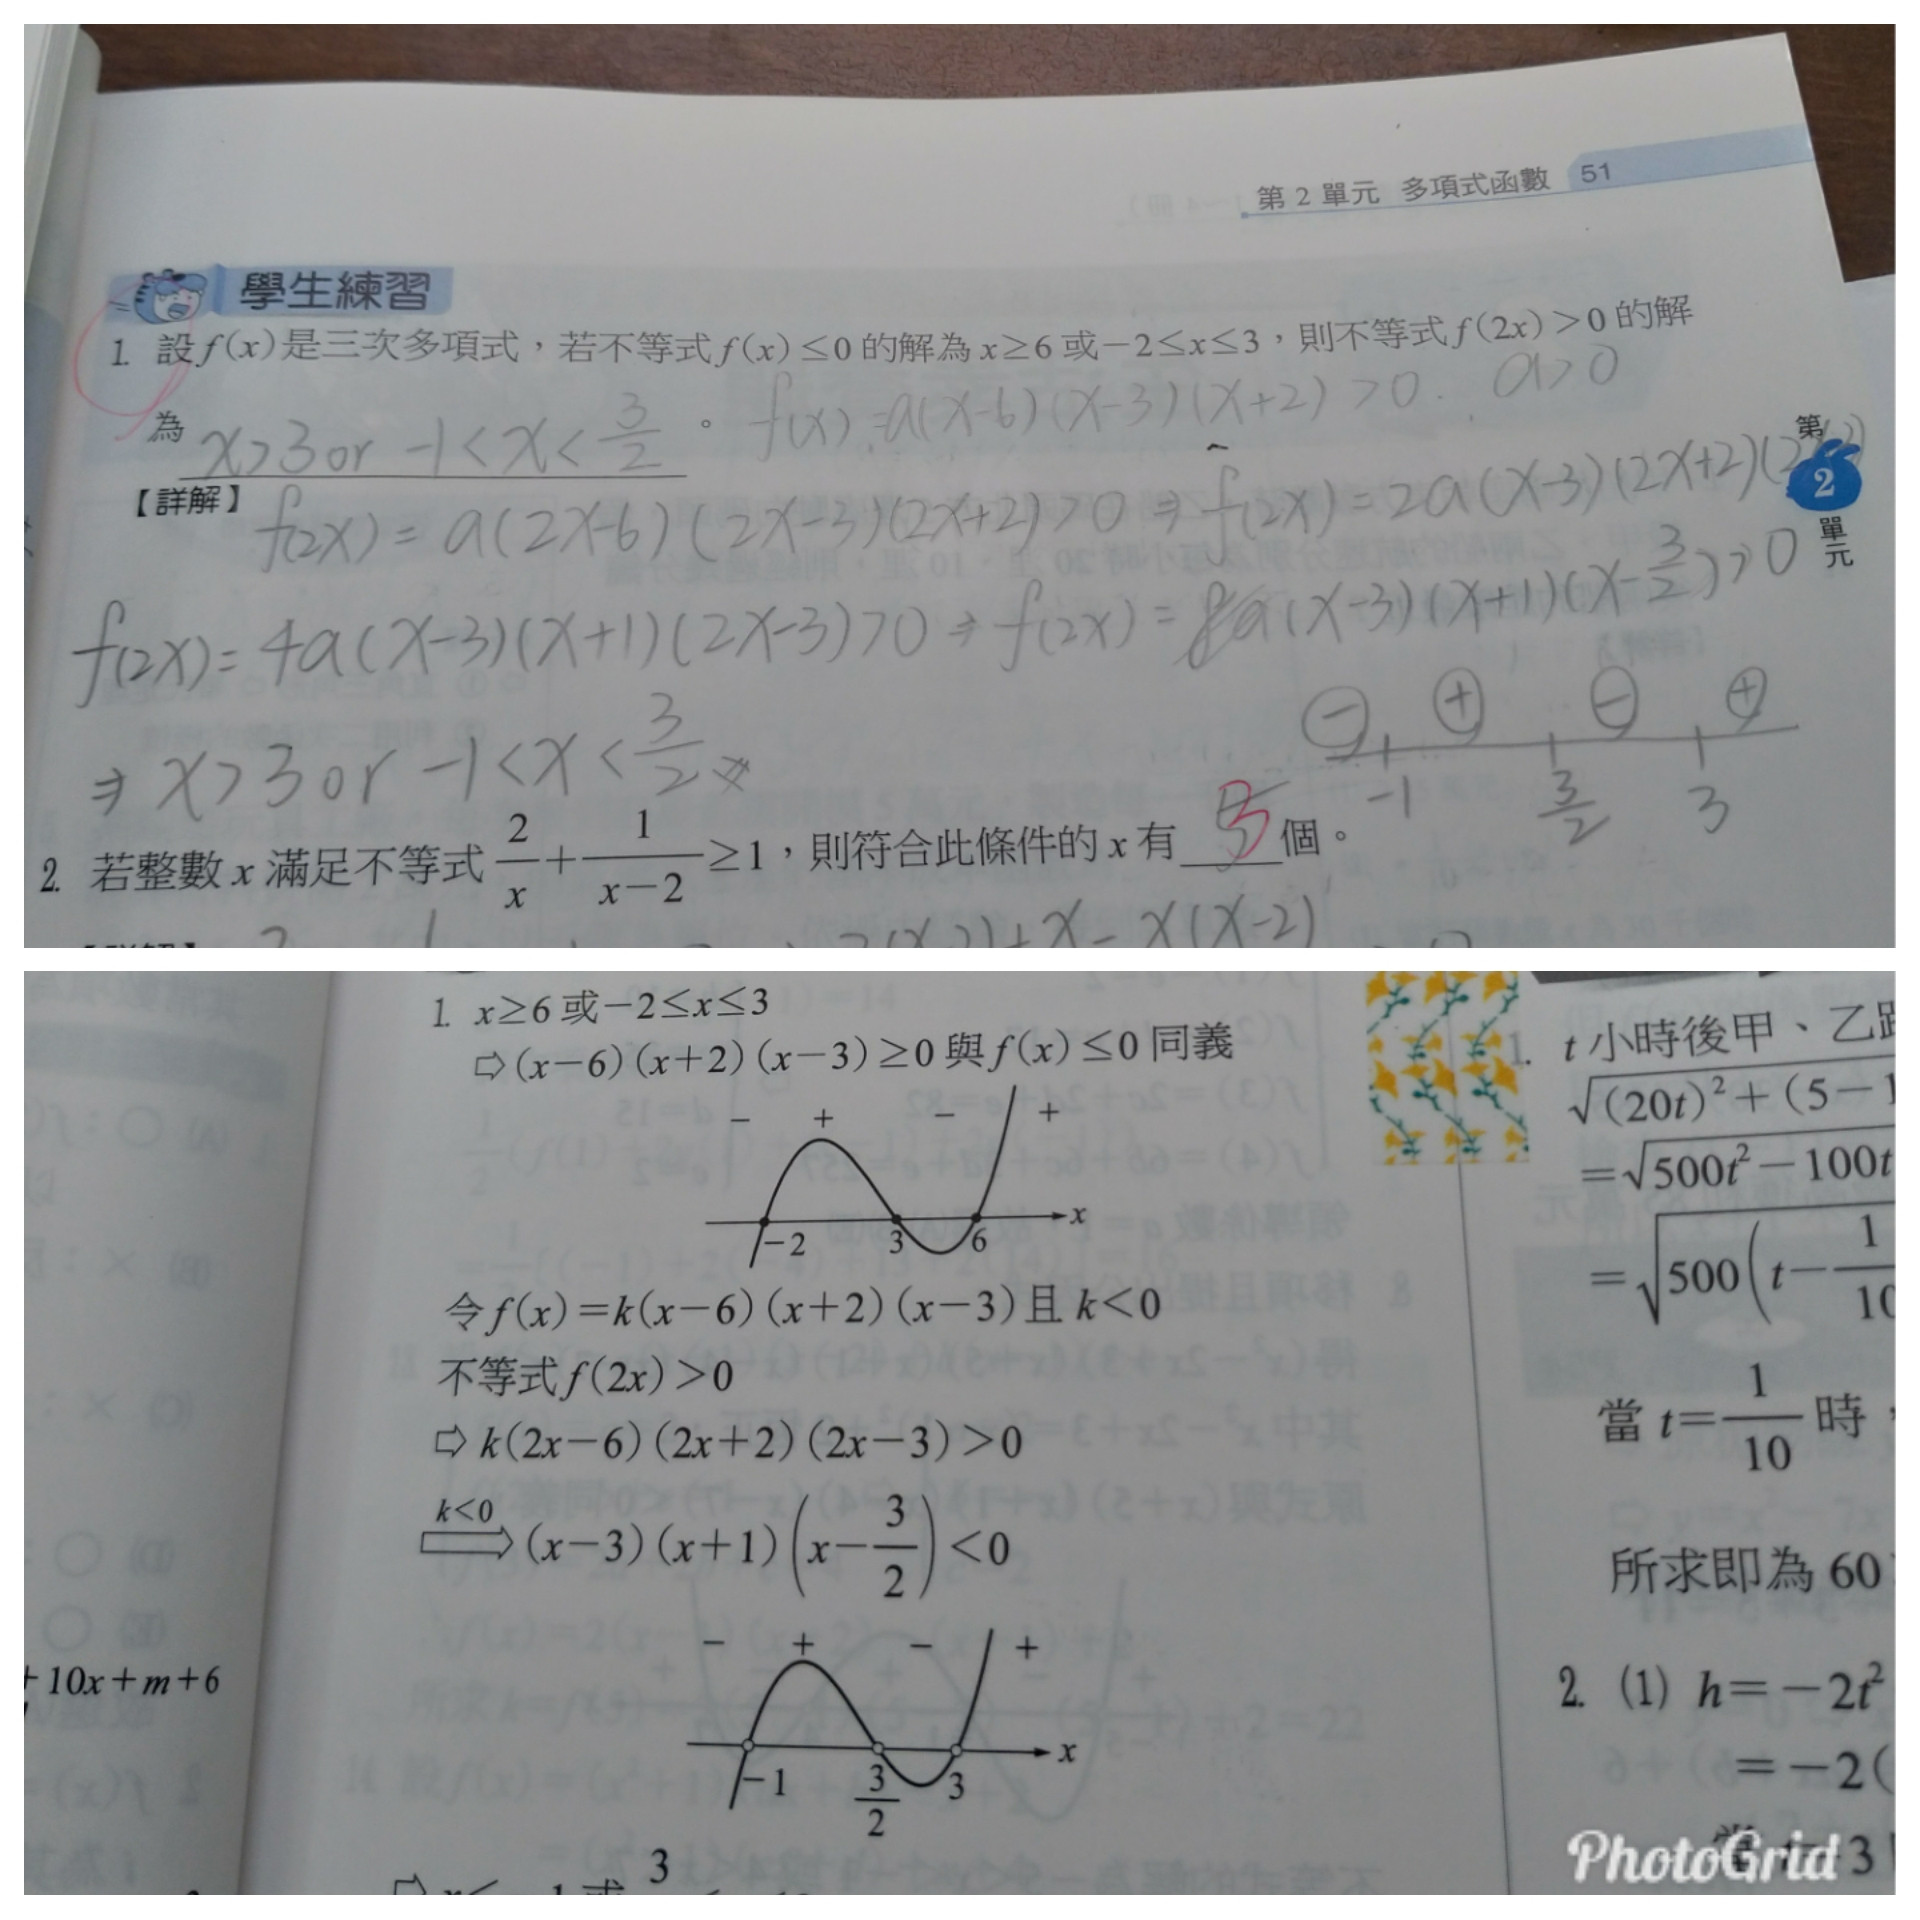 第 2 單元 多項式函數 51
學生練習
1. 設 f(x) 是三次多項式,若不等式 f(x)≤0 的解為 x≥6 或 −2≤x≤3,則不等式 f(2x)>0 的解
為 x>3 or −1<x<3/2 。 f(x)=a(x−6)(x−3)(x+2)>0. a>0
【詳解】 f(2x)=a(2x−6)(2x−3)(2x+2)>0 ⇒ f(2x)=2a(x−3)(2x+2)
第
2
單
元
f(2x)=4a(x−3)(x+1)(2x−3)>0 ⇒ f(2x)= a(x−3)(x+1)(x−3/2)>0
⇒ x>3 or −1<x<3/2
− + − +
−1 3/2 3
2. 若整數 x 滿足不等式 2/x + 1/(x−2) ≥1,則符合此條件的 x 有 3 個。
1. x≥6 或 −2≤x≤3
⇨ (x−6)(x+2)(x−3)≥0 與 f(x)≤0 同義
− + − +
−2 3 6 x
令 f(x)=k(x−6)(x+2)(x−3) 且 k<0
不等式 f(2x)>0
⇨ k(2x−6)(2x+2)(2x−3)>0
k<0
⇨ (x−3)(x+1)(x−3/2)<0
− + − +
−1 3/2 3 x
+10x+m+6
1. t 小時後甲、乙
√(20t)²+(5−1
=√500t²−100t
=√500(t−1/10
當 t=1/10 時,
所求即為 60
2. (1) h=−2t²
=−2(
PhotoGrid